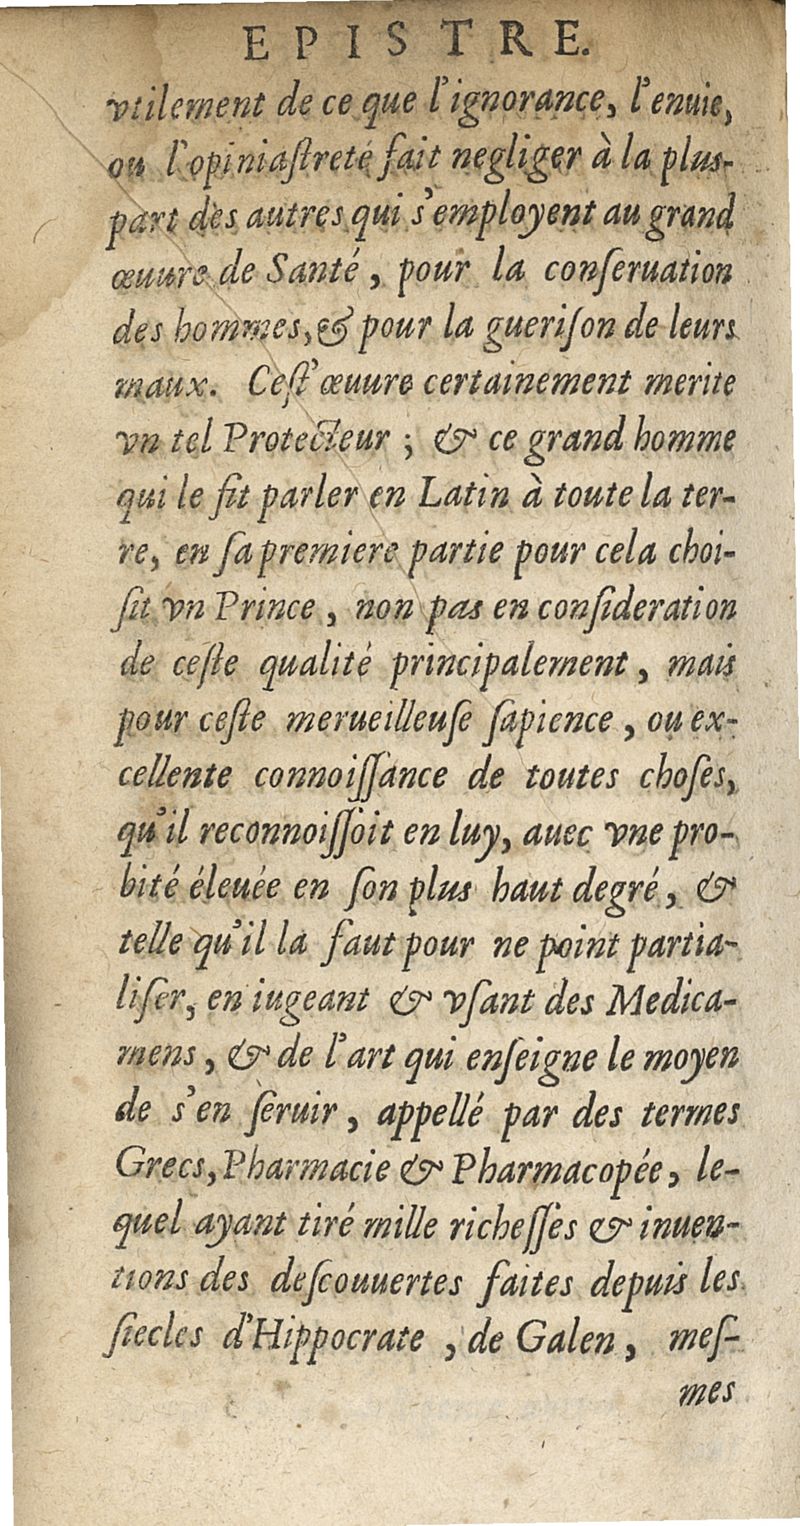 EPISTRE.
vtilement de ce que l'ignorance, l'enuie,
ou l'opiniaſtreté fait negliger à la plus-
part des autres qui s'employent au grand
œuure de Santé, pour la conſeruation
des hommes, & pour la gueriſon de leurs
maux. Ceſt'œuure certainement merite
vn tel Protecteur ; & ce grand homme
qui le fit parler en Latin à toute la ter-
re, en ſa premiere partie pour cela choi-
ſit vn Prince, non pas en conſideration
de ceſte qualité principalement, mais
pour ceſte merueilleuſe ſapience, ou ex-
cellente connoiſſance de toutes choſes,
qu'il reconnoiſſoit en luy, auec vne pro-
bité éleuée en ſon plus haut degré, &
telle qu'il la faut pour ne point partia-
liſer, en iugeant & vſant des Medica-
mens, & de l'art qui enſeigne le moyen
de s'en ſeruir, appellé par des termes
Grecs, Pharmacie & Pharmacopée, le-
quel ayant tiré mille richeſſes & inuen-
tions des deſcouuertes faites depuis les
ſiecles d'Hippocrate, de Galen, meſ-
mes